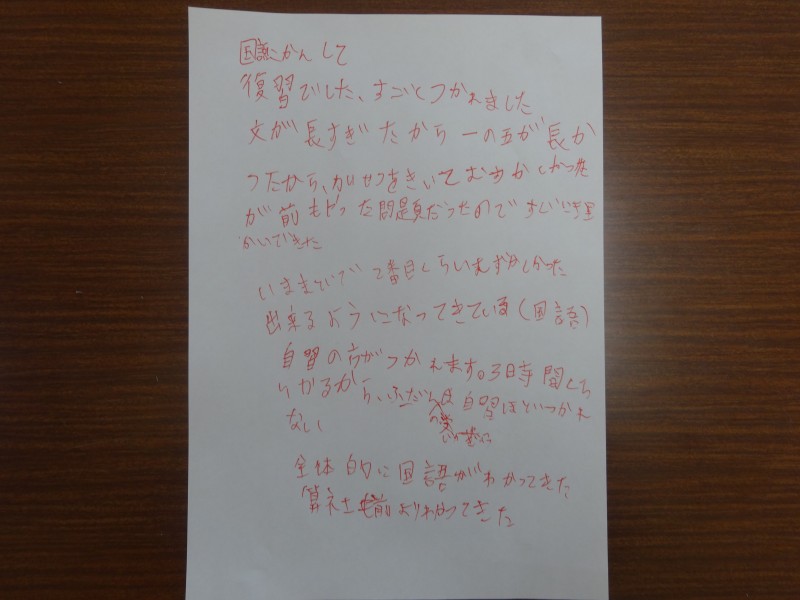 国語にかんして
復習でした、すごくつかれました
文が長すぎたから一の五が長か
つたから、かいせつをきいてむずかしかった
が前もやった問題だったのですぐに理
かいできた
いままでで2番目くらいむずかしかった
出来るようになってきている(国語)
自習の方がつかれます。3時間くら
いかるから、ふだんは自習ほどつかれ
ない
全体的に国語がわかってきた
算社も前よりわかってきた